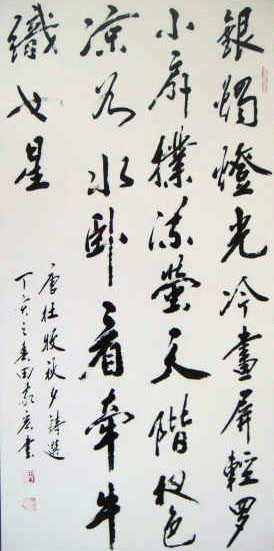 銀燭燈光冷畫屏輕罗
小扇撲流螢天階夜色
凉如水卧看牽牛
織女星
唐杜牧秋夕詩選
丁亥之春田書